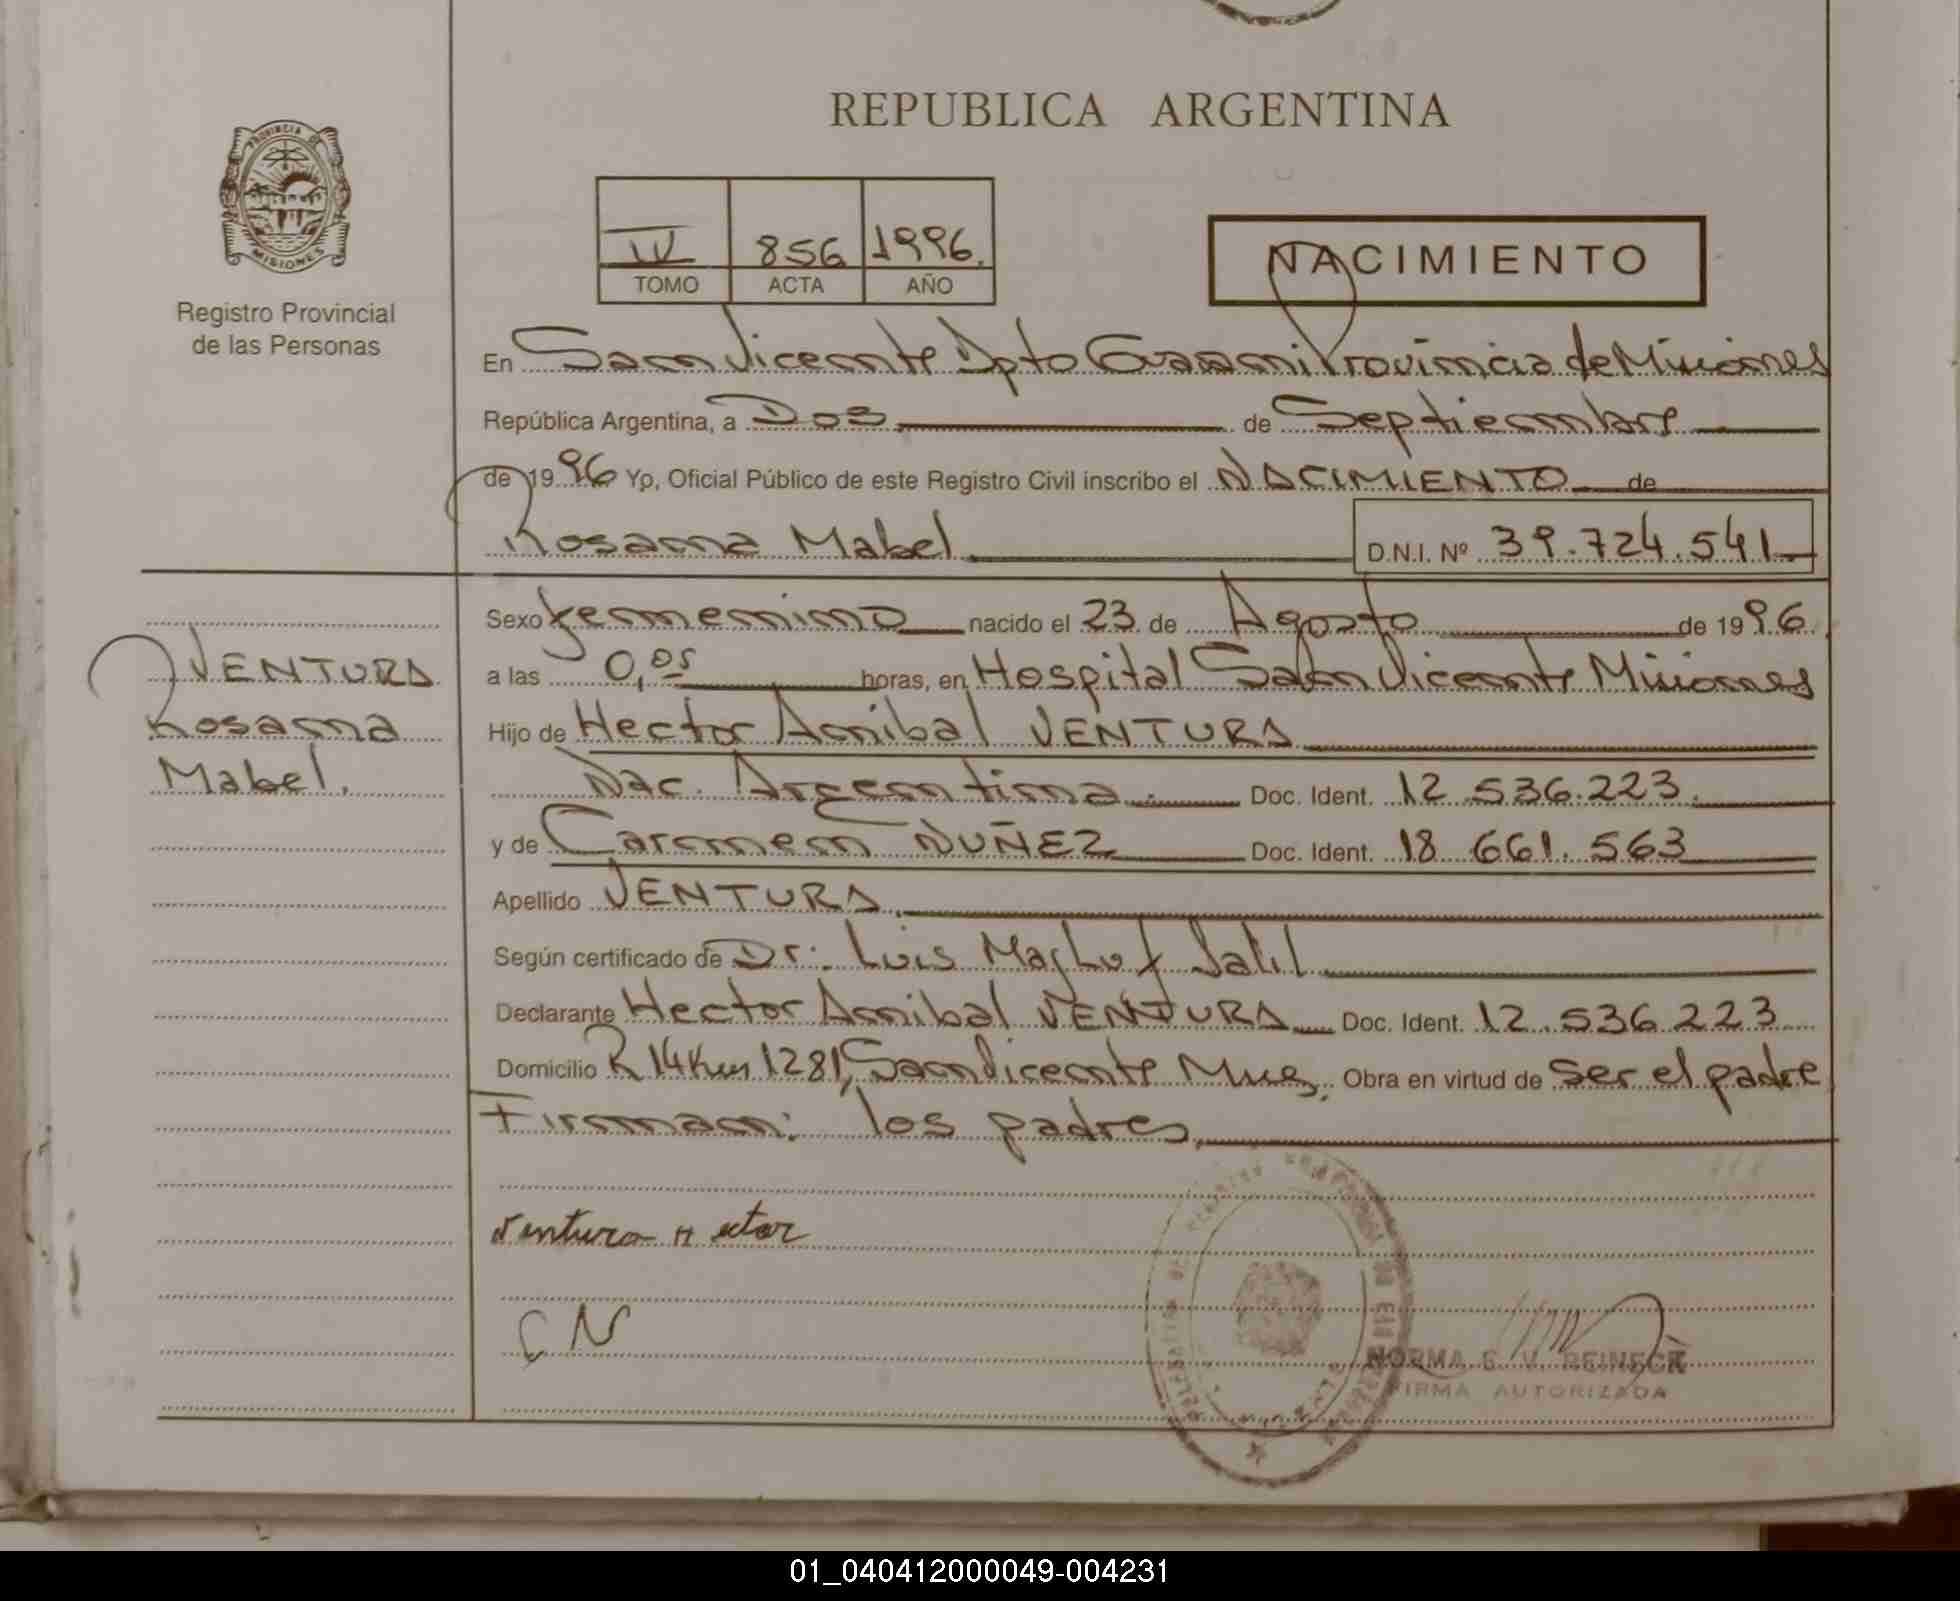 REPUBLICA ARGENTINA
PROVINCIA DE
MISIONES
Registro Provincial
de las Personas
IV 856 1996.
TOMO ACTA AÑO
NACIMIENTO
En San Vicente Dpto Guarani Provincia de Misiones
República Argentina, a Dos de Septiembre
de 1996 Yo, Oficial Público de este Registro Civil inscribo el NACIMIENTO de
Rosana Mabel D.N.I. Nº 39.724.541
VENTURA
Rosana
Mabel.
Sexo femenino nacido el 23 de Agosto de 1996
a las 0,05 horas, en Hospital San Vicente Misiones
Hijo de Hector Anibal VENTURA
Nac. Argentina. Doc. Ident. 12.536.223.
y de Carmen NUÑEZ Doc. Ident. 18.661.563
Apellido VENTURA
Según certificado de Dr. Luis Jalil
Declarante Hector Anibal VENTURA Doc. Ident. 12.536.223
Domicilio R 14 Km 1281, San Vicente Mnes. Obra en virtud de ser el padre
Firman: los padres
Ventura Hector
C N
NORMA E. V. REINECK
FIRMA AUTORIZADA
01_040412000049-004231